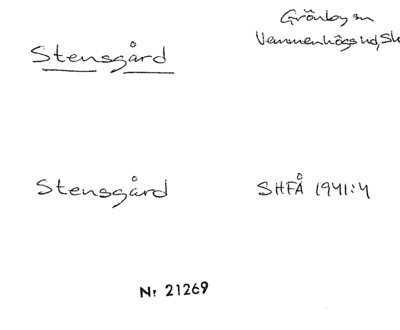 Stensgård
Grönby sn
Vemmenhögs hd, Sk
Stensgård
SHFÅ 1941:4
Nr 21269